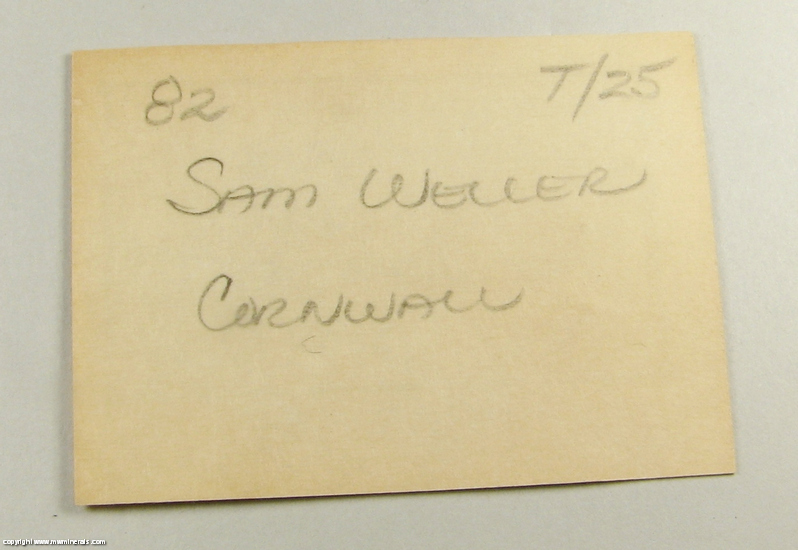 82 T/25
SAM WELLER
CORNWALL
copyright www.mwminerals.com